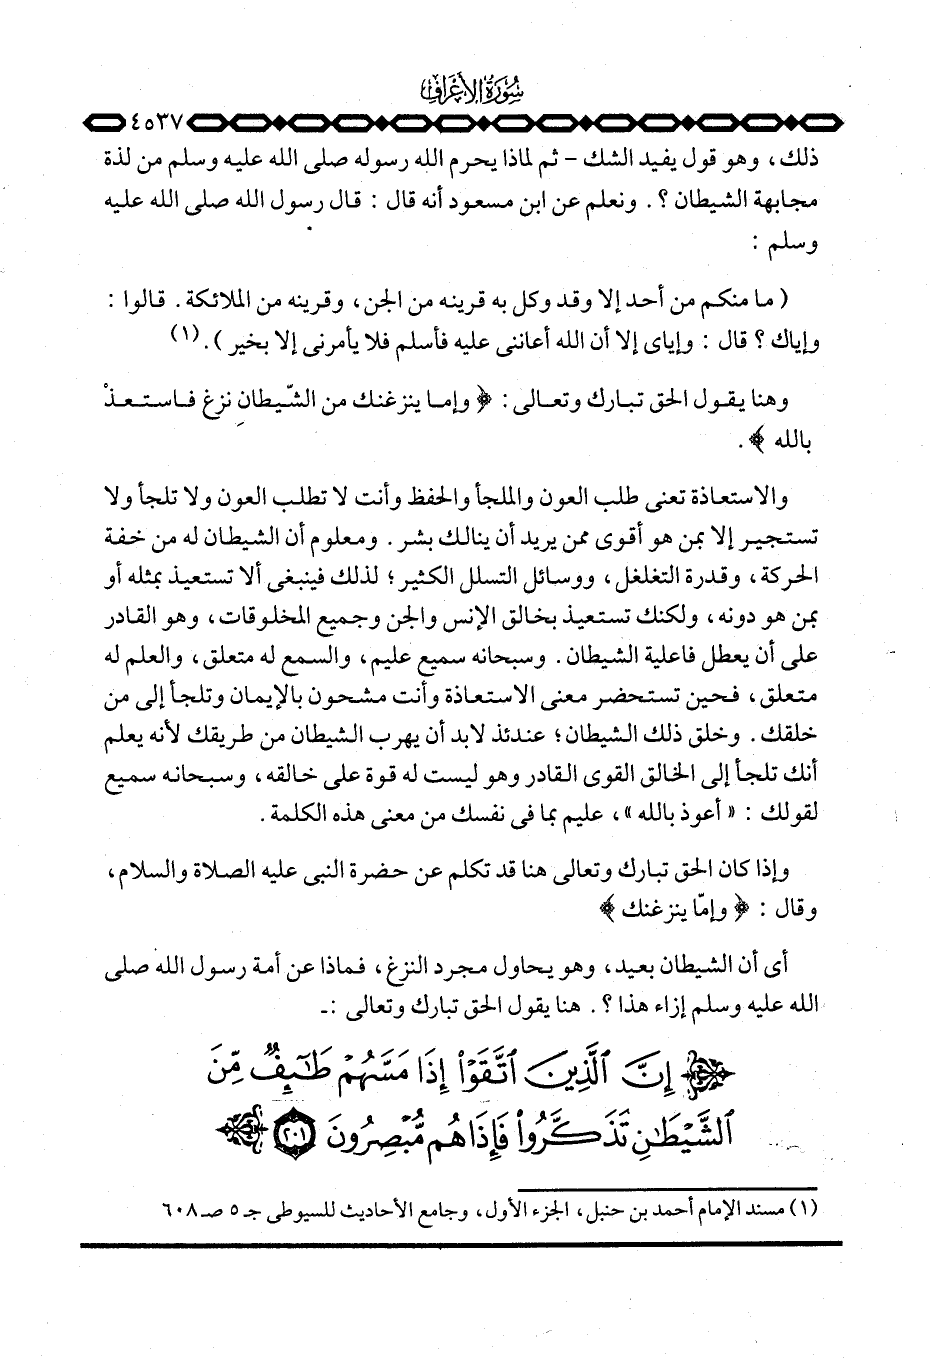 سورة الأعراف
٤٥٣٧
ذلك، وهو قول يفيد الشك – ثم لماذا يحرم الله رسوله صلى الله عليه وسلم من لذة
مجابهة الشيطان ؟. ونعلم عن ابن مسعود أنه قال : قال رسول الله صلى الله عليه
وسلم :
( ما منكم من أحد إلا وقد وكل به قرينه من الجن، وقرينه من الملائكة. قالوا :
وإياك ؟ قال : وإياى إلا أن الله أعاننى عليه فأسلم فلا يأمرنى إلا بخير ).(١)
وهنا يقول الحق تبارك وتعالى : ﴿ وإما ينزغنك من الشّيطانِ نزغ فاستعذْ
بالله ﴾ .
والاستعاذة تعنى طلب العون والملجأ والحفظ وأنت لا تطلب العون ولا تلجأ ولا
تستجير إلا بمن هو أقوى ممن يريد أن ينالك بشر . ومعلوم أن الشيطان له من خفة
الحركة، وقدرة التغلغل، ووسائل التسلل الكثير؛ لذلك فينبغى ألا تستعيذ بمثله أو
بمن هو دونه، ولكنك تستعيذ بخالق الإنس والجن وجميع المخلوقات، وهو القادر
على أن يعطل فاعلية الشيطان. وسبحانه سميع عليم، والسمع له متعلق، والعلم له
متعلق، فحين تستحضر معنى الاستعاذة وأنت مشحون بالإيمان وتلجأ إلى من
خلقك. وخلق ذلك الشيطان؛ عندئذ لابد أن يهرب الشيطان من طريقك لأنه يعلم
أنك تلجأ إلى الخالق القوى القادر وهو ليست له قوة على خالقه، وسبحانه سميع
لقولك : «أعوذ بالله»، عليم بما فى نفسك من معنى هذه الكلمة.
وإذا كان الحق تبارك وتعالى هنا قد تكلم عن حضرة النبى عليه الصلاة والسلام،
وقال : ﴿ وإمّا ينزغنك ﴾
أى أن الشيطان بعيد، وهو يحاول مجرد النزغ، فماذا عن أمة رسول الله صلى
الله عليه وسلم إزاء هذا ؟. هنا يقول الحق تبارك وتعالى :ـ
﴿ إِنَّ ٱلَّذِينَ ٱتَّقَوْا۟ إِذَا مَسَّهُمْ طَٰٓئِفٌ مِّنَ
ٱلشَّيْطَٰنِ تَذَكَّرُوا۟ فَإِذَا هُم مُّبْصِرُونَ ٢٠١ ﴾
(١) مسند الإمام أحمد بن حنبل، الجزء الأول، وجامع الأحاديث للسيوطى جـ٥ صـ٦٠٨